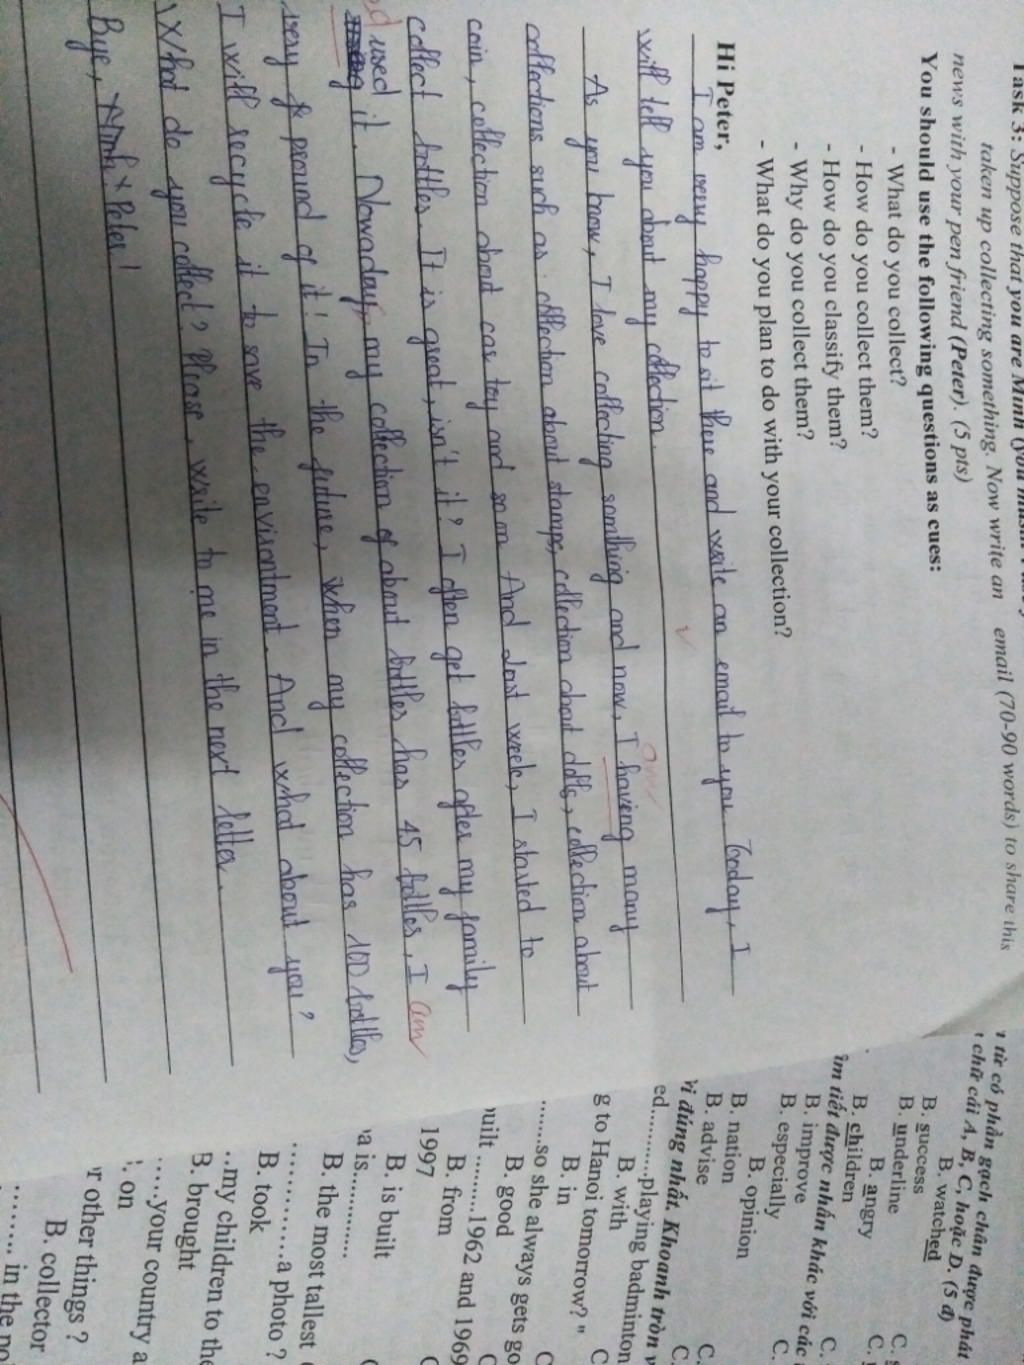 Task 3: Suppose that you are Minh (you
taken up collecting something. Now write an email (70-90 words) to share this
news with your pen friend (Peter). (5 pts)
You should use the following questions as cues:
- What do you collect?
- How do you collect them?
- How do you classify them?
- Why do you collect them?
- What do you plan to do with your collection?
Hi Peter,
I am very happy to sit there and write an email to you. Today, I
will tell you about my collection.
am
As you know, I love collecting somthing and now, I haveng many
collections such as: collection about stamps, collection about dolls, collection about
coin, collection about car toy and so on. And last week, I started to
collect bottles. It is great, isn't it? I often get bottles after my family
ed used it. Nowaday, my collection of about bottles has 45 bottles, I am
very pround of it! In the future, when my collection has 100 bottles,
I will recycle it to save the envisontment. And what about you?
What do you collect? Please, write to me in the next letter.
Bye, Peter!
từ có phần gạch chân được phát
chữ cái A, B, C, hoặc D. (5 đ)
B. watched
B. success C.
B. underline C.
B. angry
B. children
tìm tiết được nhấn khác với các
B. improve C.
B. especially
B. opinion
B. nation C.
B. advise C.
đúng nhất. Khoanh tròn
ed............playing badminton
B. with C
g to Hanoi tomorrow? "
B. in C
.......so she always gets go
B. good C
uilt .........1962 and 1969
B. from C
1997
B. is built
a is.............
B. the most tallest
...........a photo ?
B. took
..my children to the
B. brought
....your country a
. on
r other things ?
B. collector
....... in the